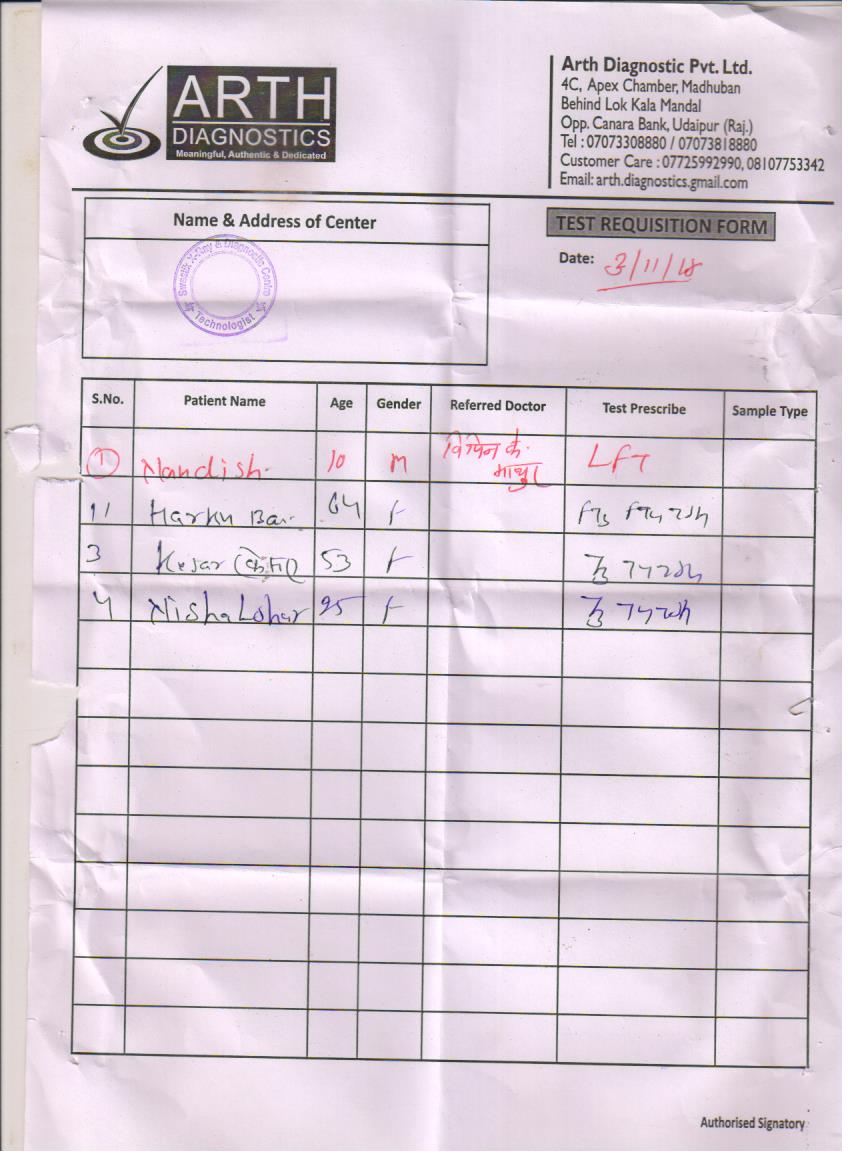 ARTH
DIAGNOSTICS
Meaningful, Authentic & Dedicated
Arth Diagnostic Pvt. Ltd.
4C, Apex Chamber, Madhuban
Behind Lok Kala Mandal
Opp. Canara Bank, Udaipur (Raj.)
Tel : 07073308880 / 07073818880
Customer Care : 07725992990, 08107753342
Email: arth.diagnostics.gmail.com
Name & Address of Center
TEST REQUISITION FORM
Date: 3/11/18
Swastik X-Ray & Diagnostic Centre
Technologist
S.No. Patient Name Age Gender Referred Doctor Test Prescribe Sample Type
1 Nandish 10 M विपिन के. माथुर LFT
11 Harku Bai 64 F
3 Kesar 53 F
4 Nisha Lohar 25 F
Authorised Signatory